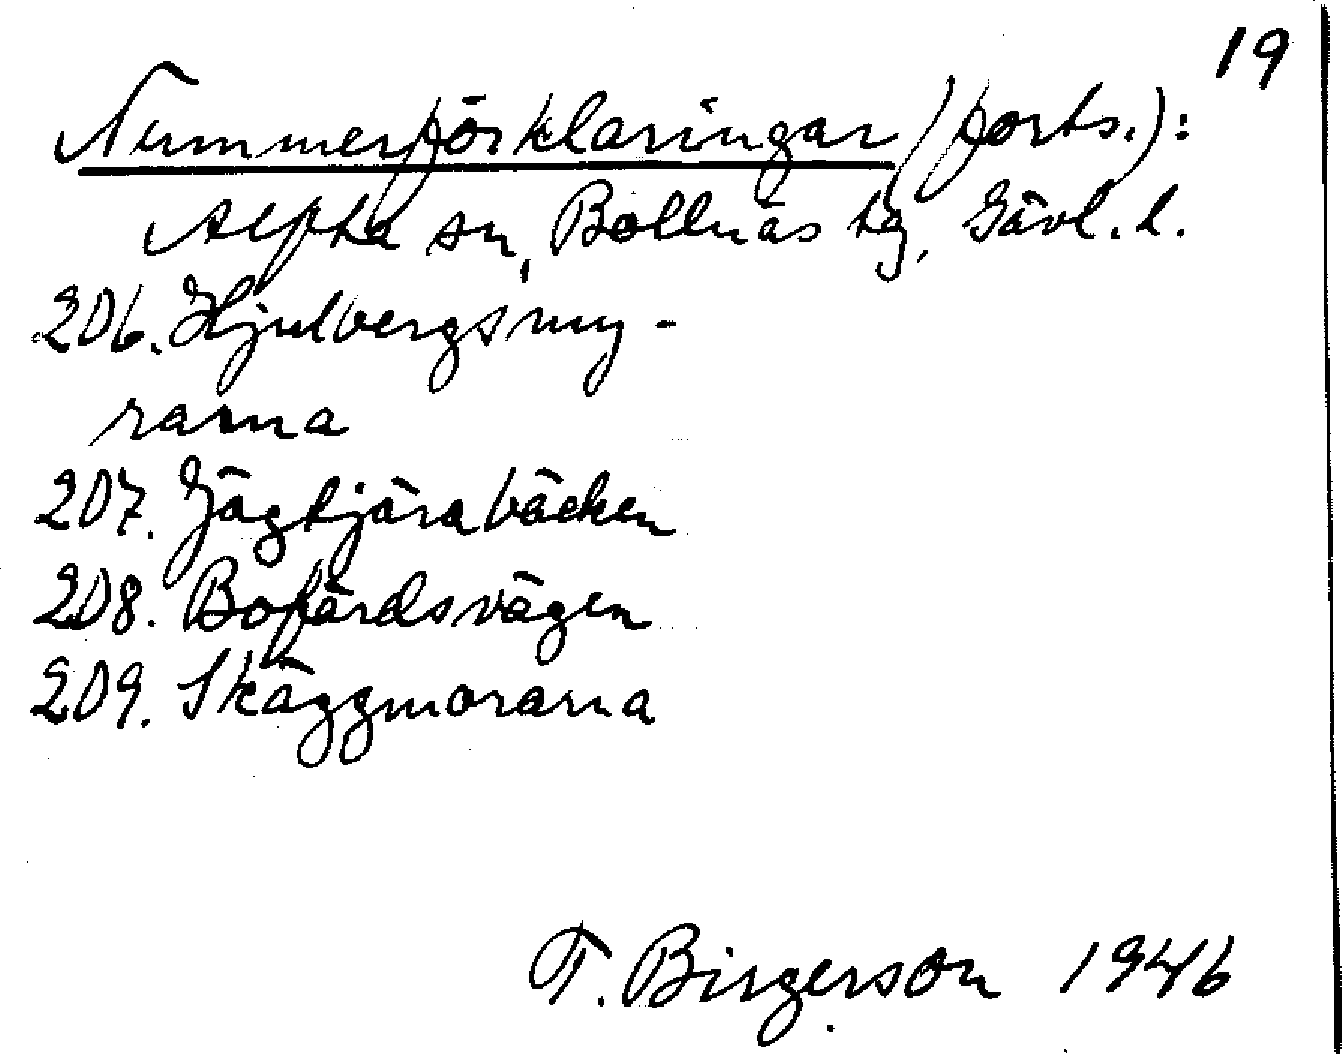 19
Nummerförklaringar (forts.):
Alfta sn, Bollnäs tg, Gävl. l.
206. Hjulbergsmy-
rarna
207. Jägtjärabäcken
208. Bofärdsvägen
209. Skäggmorarna
T. Birgerson 1946